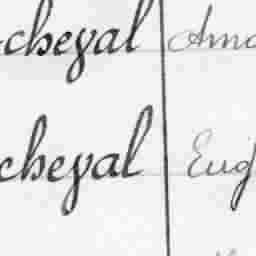 cheval Ama
cheval Eug